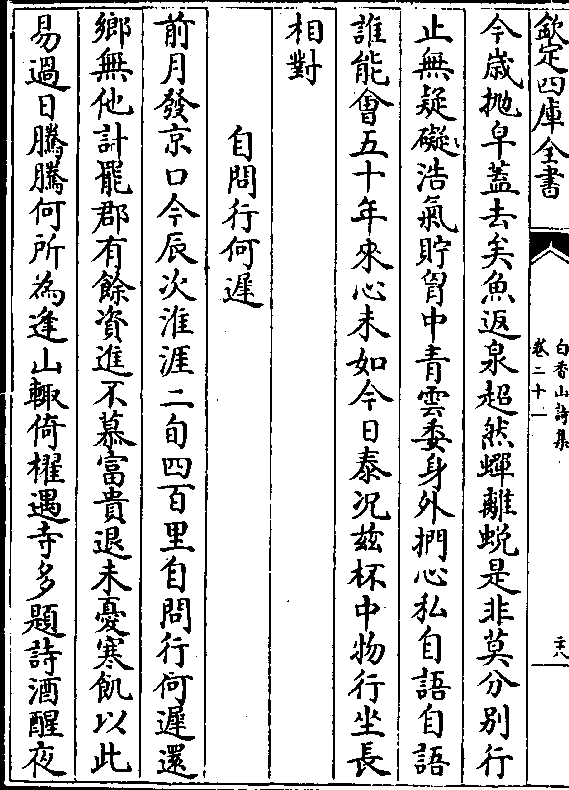 欽定四庫全書
白香山詩集
卷二十一
今歲抛皁蓋去矣魚返泉超然蟬離蛻是非莫分別行
止無疑礙浩氣貯胷中青雲委身外捫心私自語自語
誰能會五十年來心未如今日泰况兹杯中物行坐長
相對
自問行何遲
前月發京口今辰次淮涯二旬四百里自問行何遲還
鄉無他計罷郡有餘資進不慕富貴退未憂寒飢以此
易過日騰騰何所為逢山輙倚櫂遇寺多題詩酒醒夜